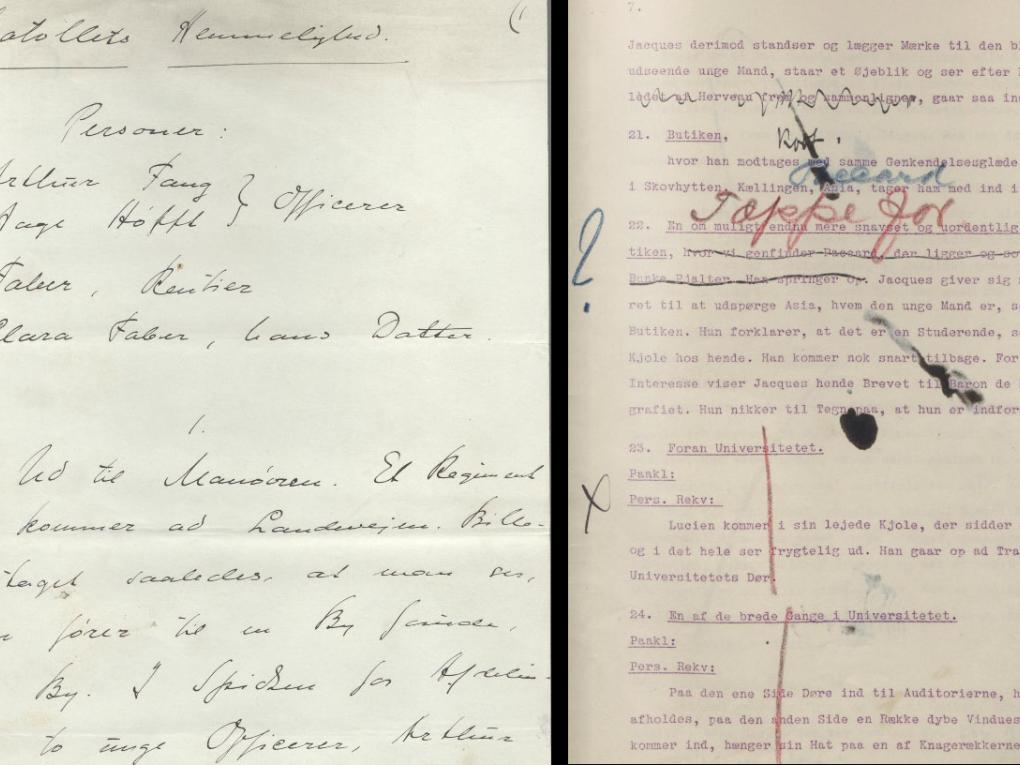 Hemmelighed.
Personer:
Arthur Fang
Aage Höfft } Officerer
Faber, Rentier
Clara Faber, hans Datter.
1.
Ud til Manøvren. Et Regiment
kommer ad Landevejen. Bille-
taget saaledes, at man ser,
fører til en By
By. I Spidsen for Afdelin-
to unge Officerer, Arthur
7.
Jacques derimod standser og lægger Mærke til den bl
udseende unge Mand, staar et Øjeblik og ser efter
ledet af Herveau frem og sammenligner, gaar saa in
21. Butiken,
Kort.
hvor han modtages med samme Genkendelsesglæde
Paccard
i Skovhytten. Kællingen, Asia, tager ham med ind i
Tæppe for
22. En om muligt endnu mere snavset og uordentlig
?
tiken, hvor vi genfinder Paccard, der ligger og so
Banke Pjalter. Han springer op. Jacques giver sig
ret til at udspørge Asia, hvem den unge Mand er, s
Butiken. Hun forklarer, at det er en Studerende, s
Kjole hos hende. Han kommer nok snart tilbage. For
Interesse viser Jacques hende Brevet til Baron de
grafiet. Hun nikker til Tegn paa, at hun er indfor
23. Foran Universitetet.
Paakl:
X
Pers. Rekv:
Lucien kommer i sin lejede Kjole, der sidder
og i det hele ser frygtelig ud. Han gaar op ad Tra
Universitetets Dør.
24. En af de brede Gange i Universitetet.
Paakl:
Pers. Rekv:
Paa den ene Side Døre ind til Auditorierne, h
afholdes, paa den anden Side en Række dybe Vindues
kommer ind, hænger sin Hat paa en af Knagerækkerne